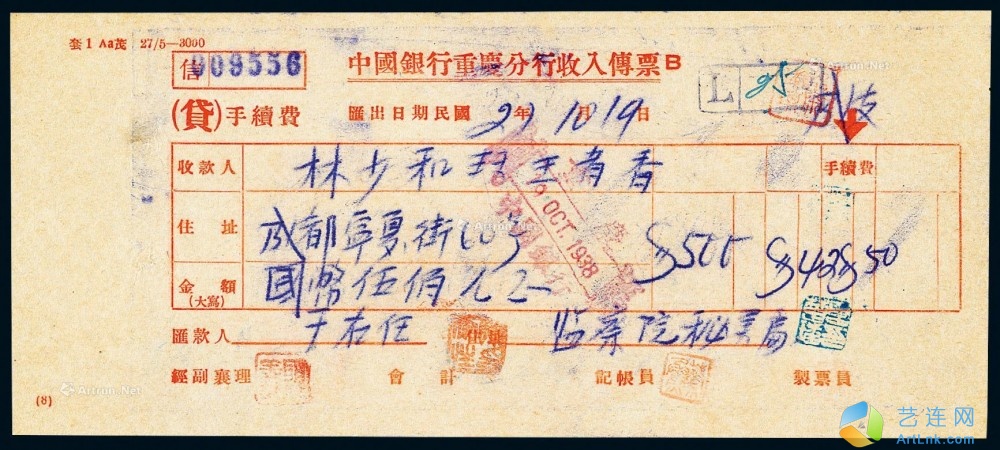 套1 Aa茂 27/5—3000
信 009556
中國銀行重慶分行收入傳票B
L 25
(貸)手續費
匯出日期民國 27年 10月19日
支
收款人 林少和 王青香 手續費
19 OCT 1938
住址 成都寧夏街60号 $500 $50
金額(大寫) 國幣伍佰元正
匯款人 于右任 住址 监察院秘書處
經副襄理 會計 記帳員 製票員
(8)
Artron.Net
艺连网
ArtLnk.com